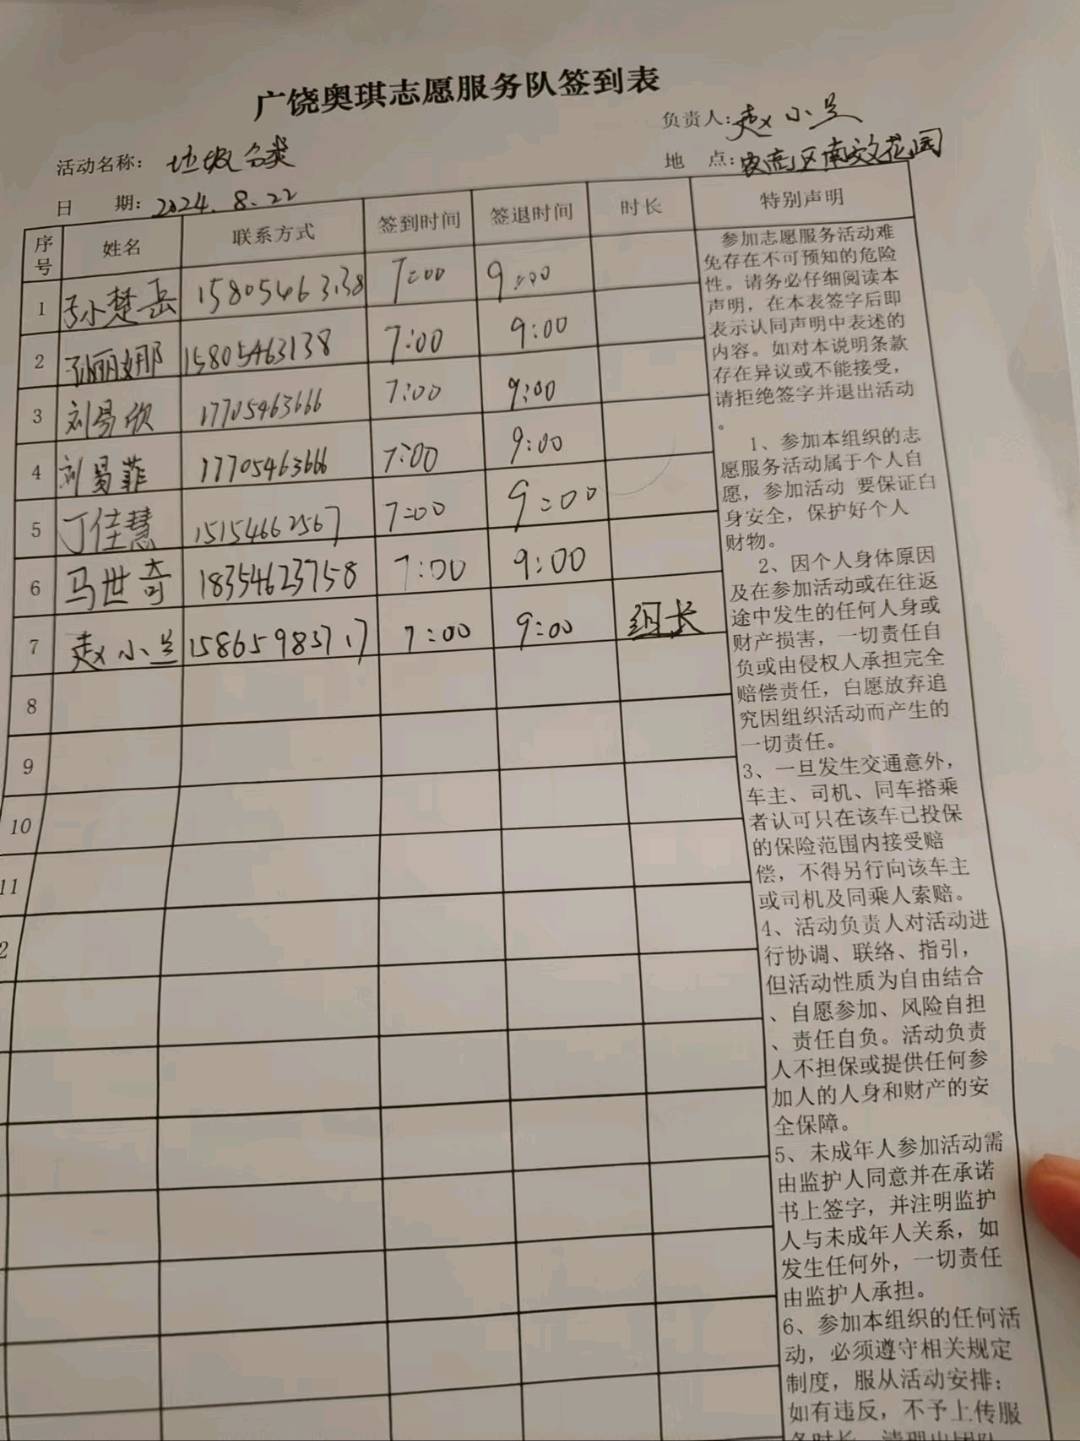 广饶奥琪志愿服务队签到表
活动名称： 垃圾分类 负责人：赵小兰
日 期：2024.8.22 地 点：农高区南郊花园
序号 姓名 联系方式 签到时间 签退时间 时长 特别声明
1 孙楚岳 15805463138 7:00 9:00
2 孙丽娜 15805463138 7:00 9:00
3 刘昜欣 17705463666 7:00 9:00
4 刘昜菲 17705463666 7:00 9:00
5 丁佳慧 15154662567 7:00 9:00
6 马世奇 18354623758 7:00 9:00
7 赵小兰 15865983717 7:00 9:00 组长
8
9
10
11
2
参加志愿服务活动难
免存在不可预知的危险
性。请务必仔细阅读本
声明，在本表签字后即
表示认同声明中表述的
内容。如对本说明条款
存在异议或不能接受，
请拒绝签字并退出活动
。
1、参加本组织的志
愿服务活动属于个人自
愿，参加活动 要保证白
身安全，保护好个人
财物。
2、因个人身体原因
及在参加活动或在往返
途中发生的任何人身或
财产损害，一切责任自
负或由侵权人承担完全
赔偿责任，白愿放弃追
究因组织活动而产生的
一切责任。
3、一旦发生交通意外，
车主、司机、同车搭乘
者认可只在该车已投保
的保险范围内接受赔
偿，不得另行向该车主
或司机及同乘人索赔。
4、活动负责人对活动进
行协调、联络、指引，
但活动性质为自由结合
、自愿参加、风险自担
、责任自负。活动负责
人不担保或提供任何参
加人的人身和财产的安
全保障。
5、未成年人参加活动需
由监护人同意并在承诺
书上签字，并注明监护
人与未成年人关系，如
发生任何外，一切责任
由监护人承担。
6、参加本组织的任何活
动，必须遵守相关规定
制度，服从活动安排；
如有违反，不予上传服
务时长，清理出团队